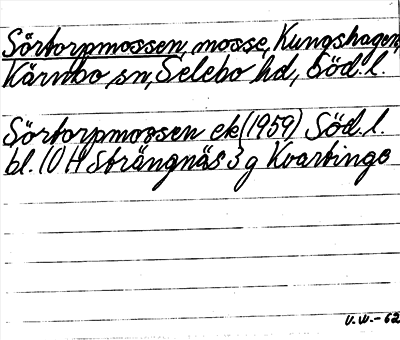 Sörtorpmossen, mosse, Kungshagen,
Kärnbo sn, Selebo hd, Söd. l.
Sörtorpmossen ek (1959) Söd. l.
bl. 10 H Strängnäs 3 g Kvartinge
V.W.-62